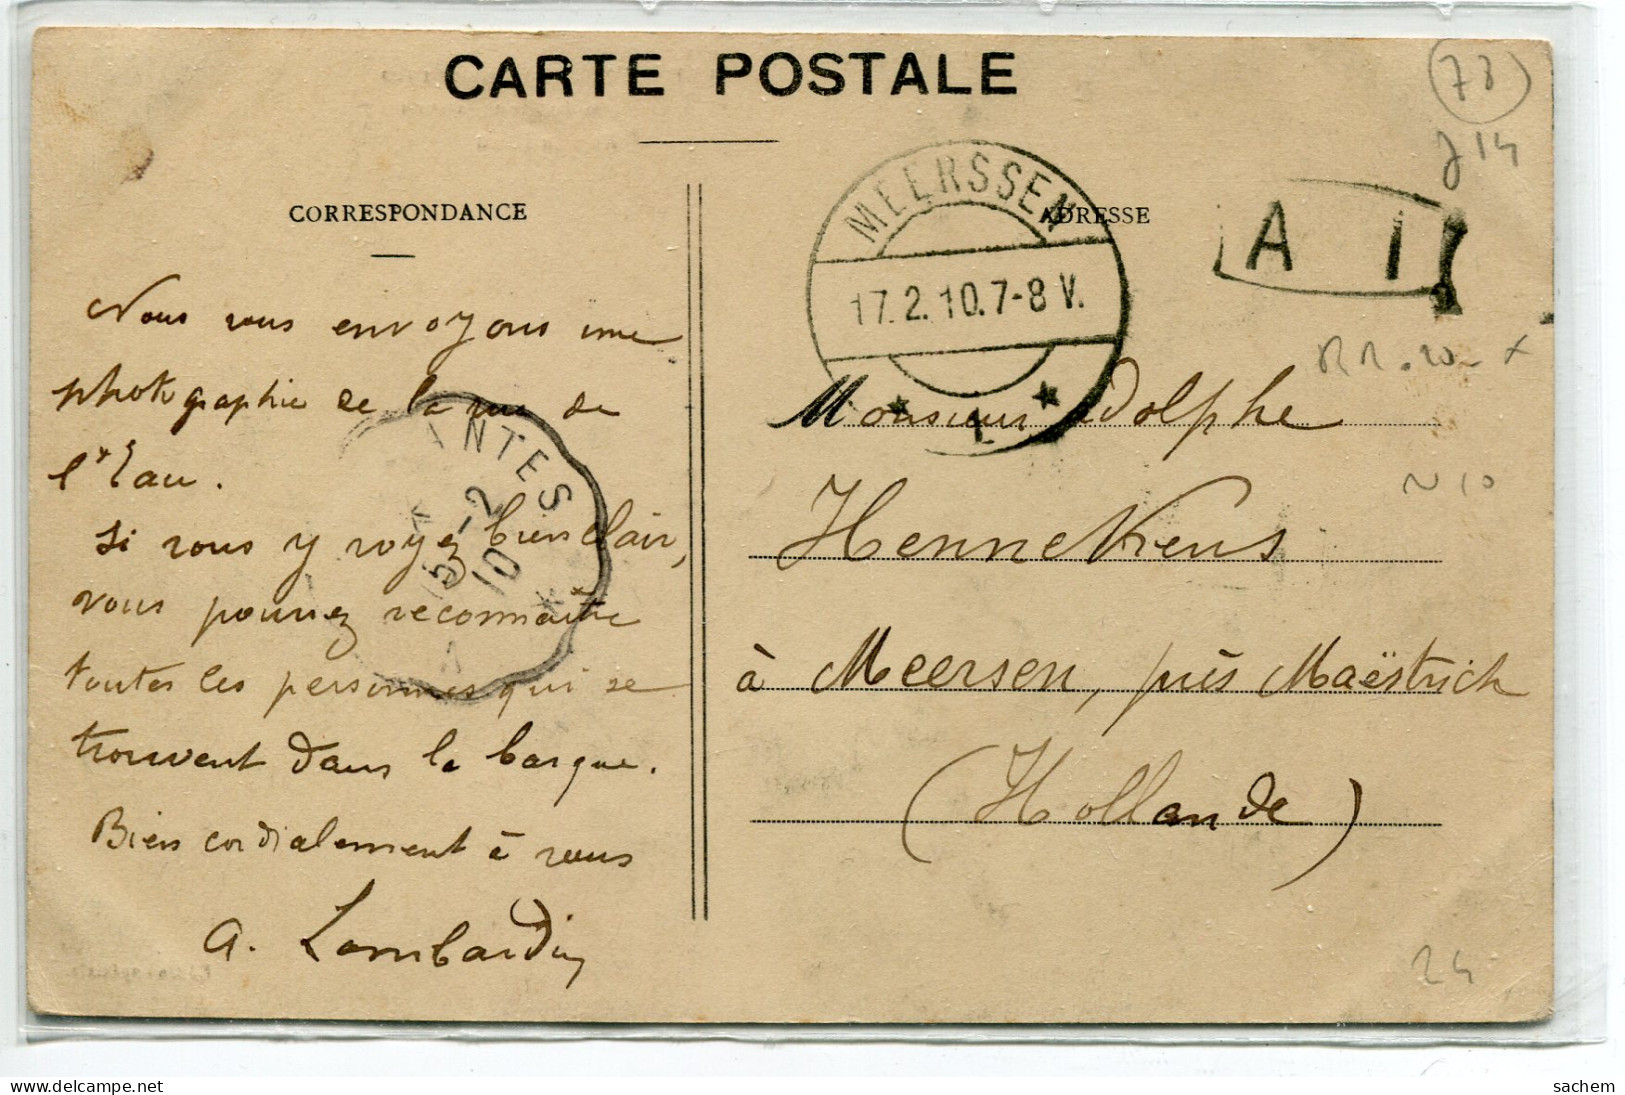 CARTE POSTALE
CORRESPONDANCE
ADRESSE
Nous vous envoyons une
photographie de la rue de
l'Eau.
Si vous y voyez bien clair,
vous pourrez reconnaître
toutes les personnes qui se
trouvent dans la barque.
Bien cordialement à vous
A. Lombardin
ANTES
15-2
10
MEERSSEN
17.2.10.7-8 V.
1
A I
78
J14
Monsieur Adolphe
Hennekens
à Meersen, près Maëstrich
(Hollande)
N10
24
sachem